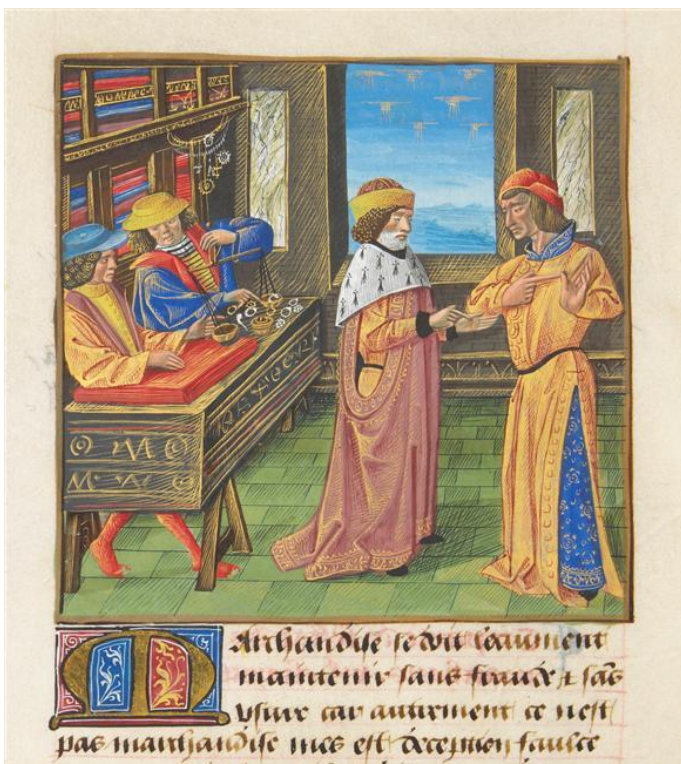 Marchandise se doit loaument
maintenir sans fraude & sãs
usure car autrement ce nest
pas marchandise mes est decepcion faulce